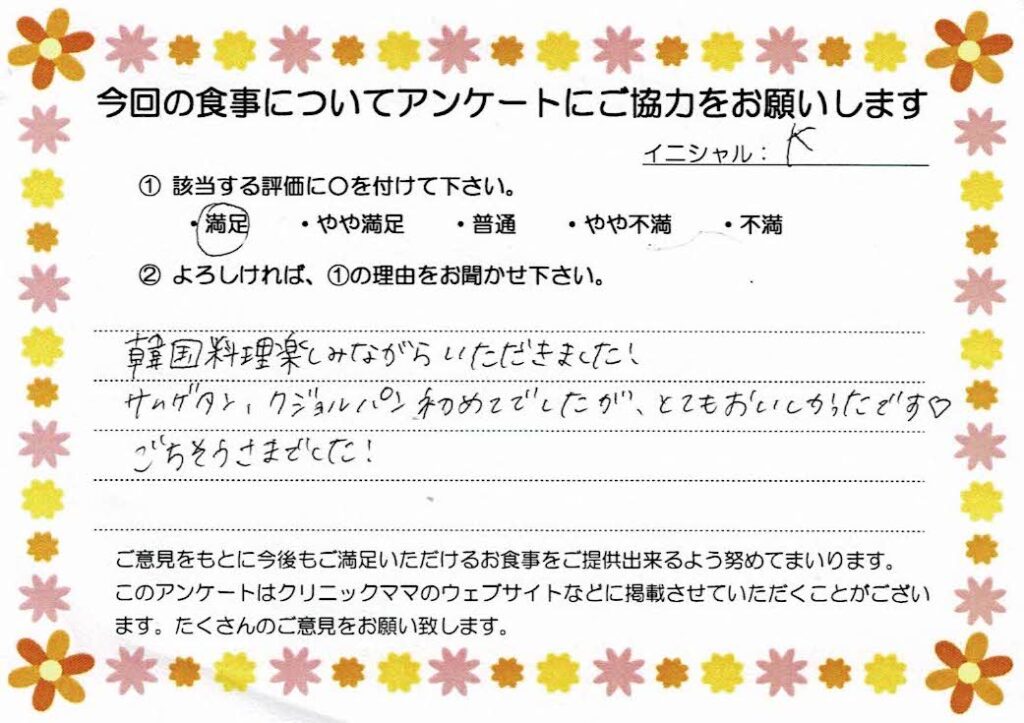 今回の食事についてアンケートにご協力をお願いします
イニシャル： K
① 該当する評価に〇を付けて下さい。
・満足 ・やや満足 ・普通 ・やや不満 ・不満
② よろしければ、①の理由をお聞かせ下さい。
韓国料理楽しみながらいただきました！
サムゲタン、クジョルパン初めてでしたが、とてもおいしかったです♡
ごちそうさまでした！
ご意見をもとに今後もご満足いただけるお食事をご提供出来るよう努めてまいります。
このアンケートはクリニックママのウェブサイトなどに掲載させていただくことがござい
ます。たくさんのご意見をお願い致します。